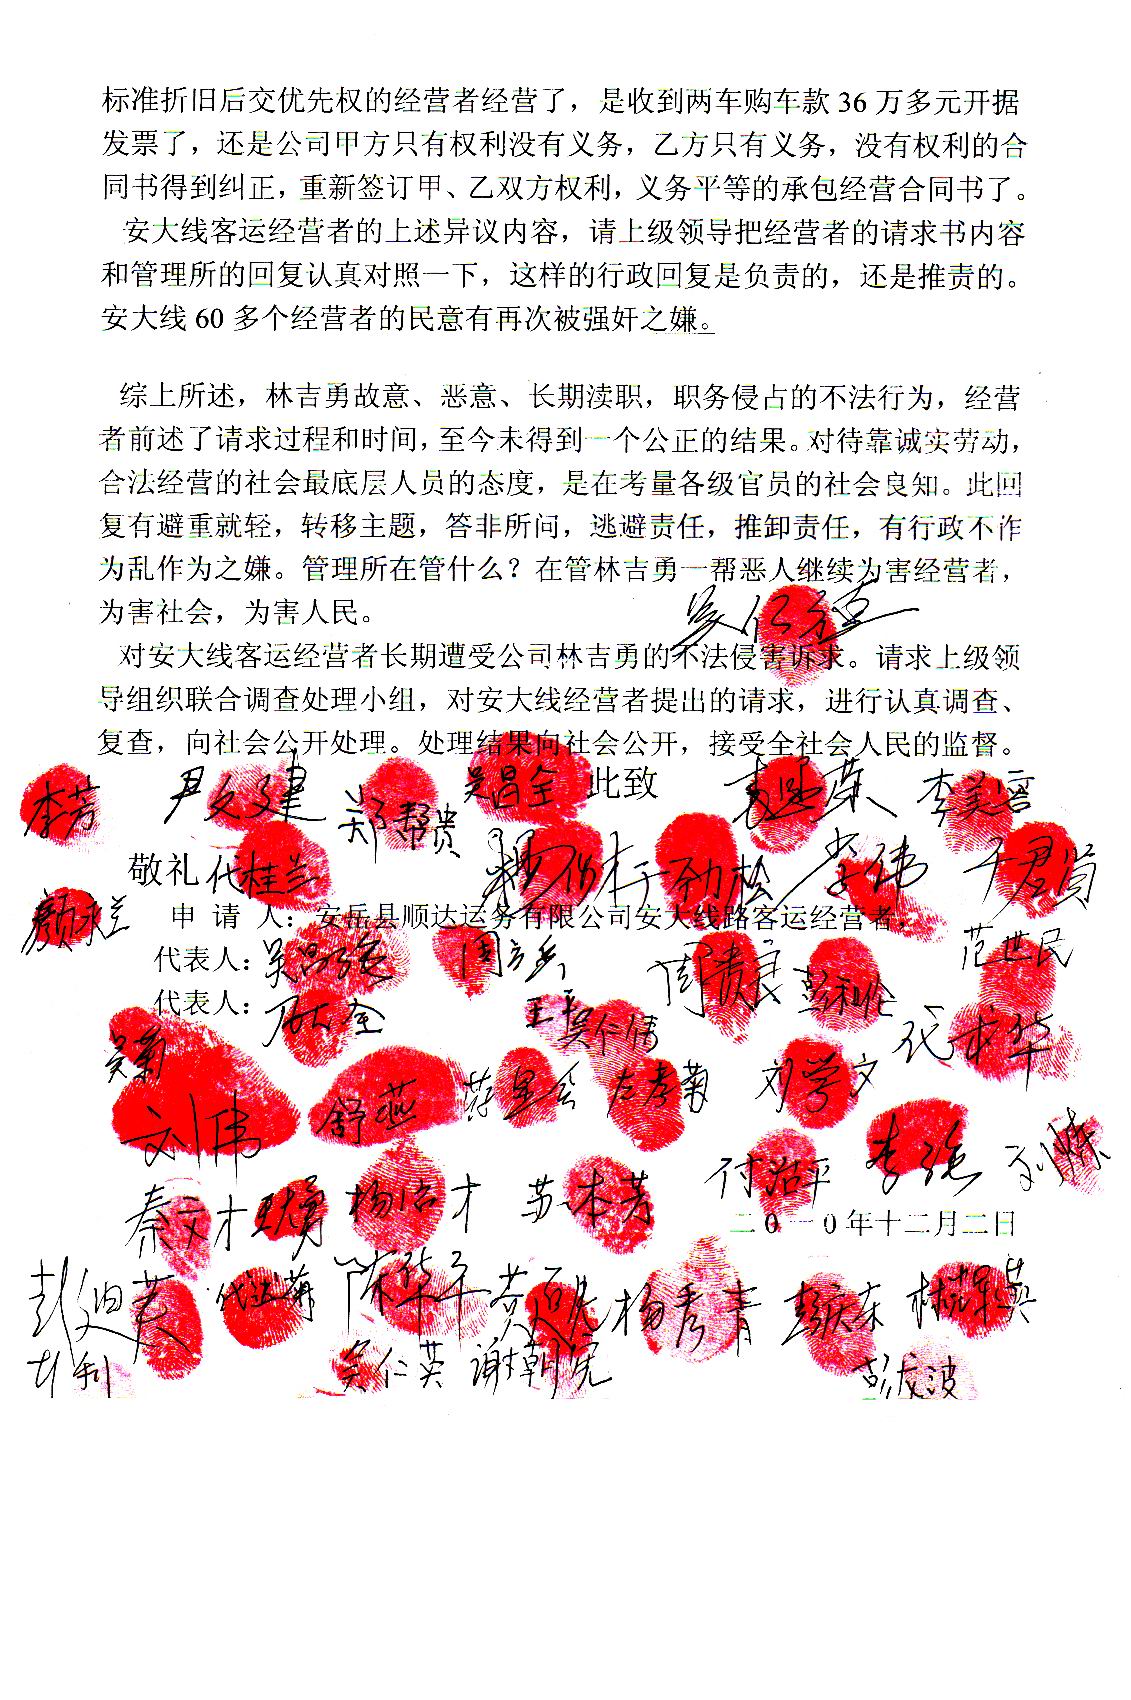 标准折旧后交优先权的经营者经营了，是收到两车购车款36万多元开据
发票了，还是公司甲方只有权利没有义务，乙方只有义务，没有权利的合
同书得到纠正，重新签订甲、乙双方权利，义务平等的承包经营合同书了。
安大线客运经营者的上述异议内容，请上级领导把经营者的请求书内容
和管理所的回复认真对照一下，这样的行政回复是负责的，还是推责的。
安大线60多个经营者的民意有再次被强奸之嫌。
综上所述，林吉勇故意、恶意、长期渎职，职务侵占的不法行为，经营
者前述了请求过程和时间，至今未得到一个公正的结果。对待靠诚实劳动，
合法经营的社会最底层人员的态度，是在考量各级官员的社会良知。此回
复有避重就轻，转移主题，答非所问，逃避责任，推卸责任，有行政不作
为乱作为之嫌。管理所在管什么？在管林吉勇一帮恶人继续为害经营者，
为害社会，为害人民。
对安大线客运经营者长期遭受公司林吉勇的不法侵害诉求。请求上级领
导组织联合调查处理小组，对安大线经营者提出的请求，进行认真调查、
复查，向社会公开处理。处理结果向社会公开，接受全社会人民的监督。
李芳 尹文建 郑帮贵 吴昌全 此致 李美容
敬礼 代桂兰 于劲松 李伟 于君尚
申 请 人：安岳县顺达运务有限公司安大线路客运经营者，
代表人：吴昌强 周立兵 周贵良 彭利伦 范世民
代表人：
王平 吴仁伟 代成华
吴菊
刘伟 舒燕 蒋星会 左孝菊 刘学文
付治平 李强
秦文才 王勇 杨治才 苏本芳
二0一0年十二月二日
陈华平 杨秀青 彭庆东
吴仁英 谢朝宪 彭成波